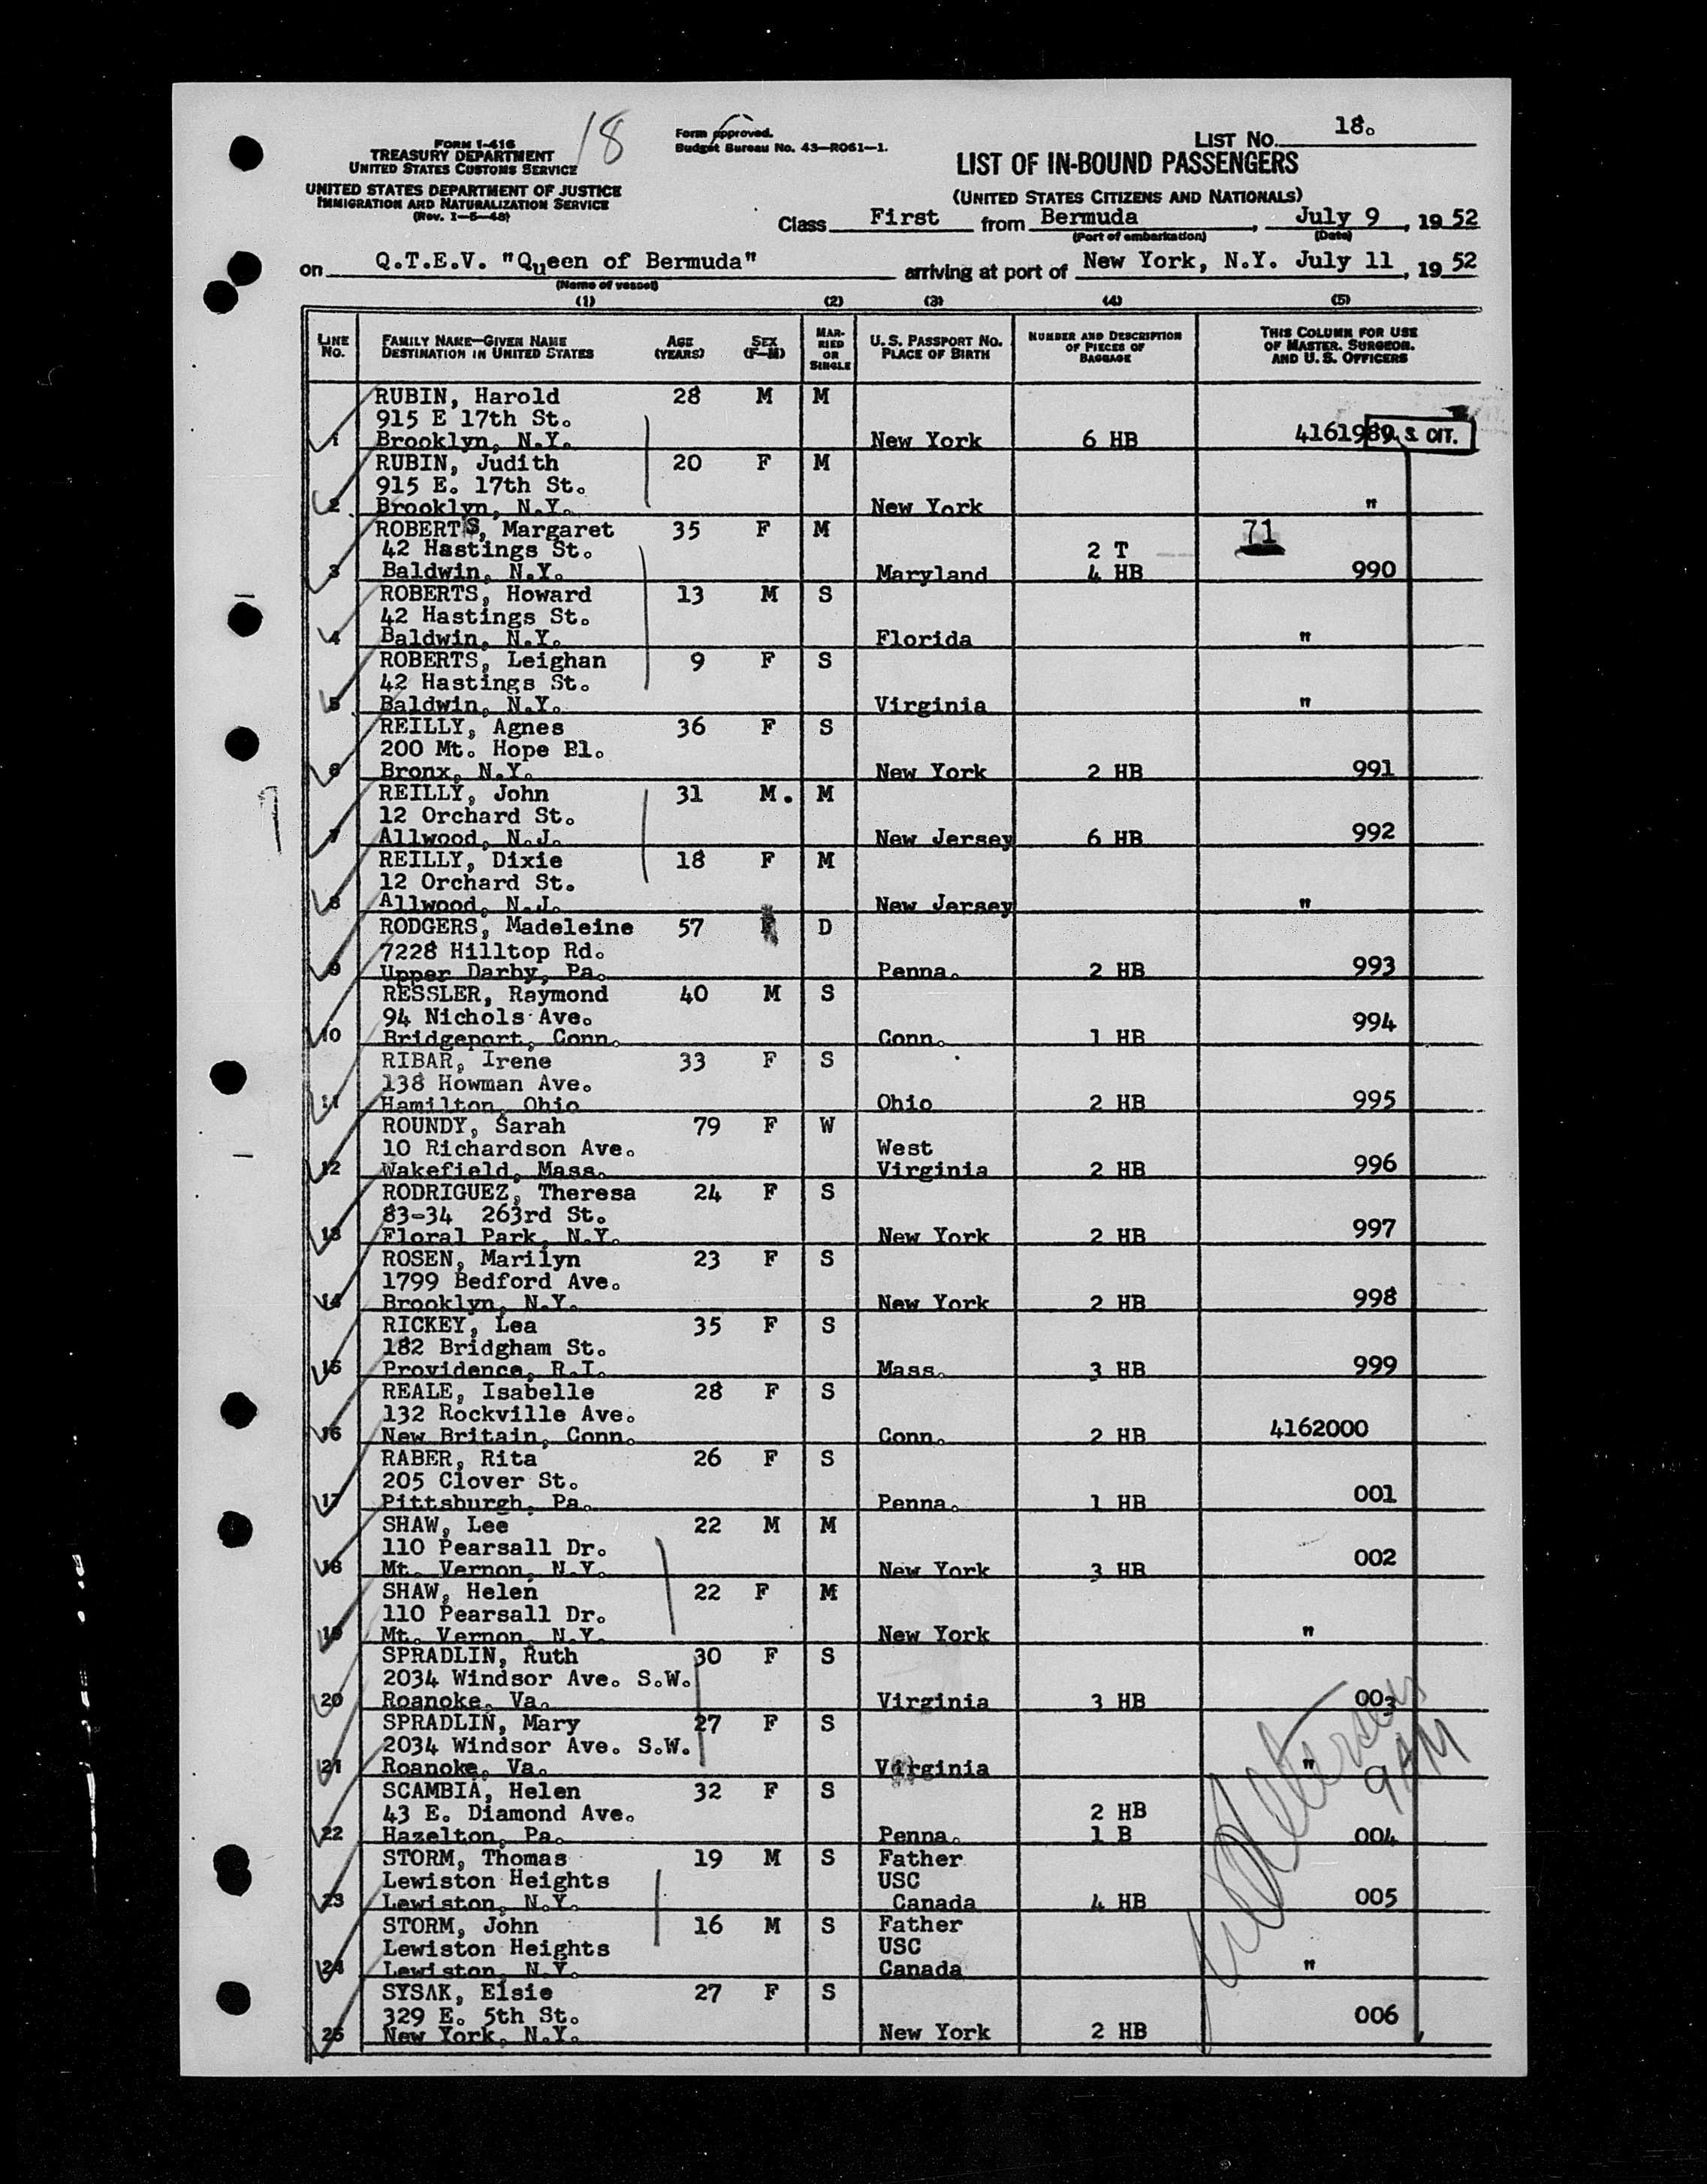 18
FORM I-416
TREASURY DEPARTMENT
UNITED STATES CUSTOMS SERVICE
UNITED STATES DEPARTMENT OF JUSTICE
IMMIGRATION AND NATURALIZATION SERVICE
(Rev. 1-5-48)
Form approved.
Budget Bureau No. 43-R061-1.
LIST NO. 18.
LIST OF IN-BOUND PASSENGERS
(UNITED STATES CITIZENS AND NATIONALS)
Class First from Bermuda, July 9, 1952
(Port of embarkation) (Date)
on Q.T.E.V. "Queen of Bermuda" arriving at port of New York, N.Y. July 11, 1952
(Name of vessel)
(1) (2) (3) (4) (5)
LINE NO.
FAMILY NAME—GIVEN NAME
DESTINATION IN UNITED STATES
AGE (YEARS)
SEX (F-M)
MARRIED OR SINGLE
U. S. PASSPORT NO.
PLACE OF BIRTH
NUMBER AND DESCRIPTION OF PIECES OF BAGGAGE
THIS COLUMN FOR USE OF MASTER, SURGEON, AND U. S. OFFICERS
RUBIN, Harold 28 M M
915 E 17th St.
1 Brooklyn, N.Y. New York 6 HB 4161989 S CIT.
RUBIN, Judith 20 F M
915 E. 17th St.
2 Brooklyn, N.Y. New York "
ROBERTS, Margaret 35 F M 71
42 Hastings St. 2 T
3 Baldwin, N.Y. Maryland 4 HB 990
ROBERTS, Howard 13 M S
42 Hastings St.
4 Baldwin, N.Y. Florida "
ROBERTS, Leighan 9 F S
42 Hastings St.
5 Baldwin, N.Y. Virginia "
REILLY, Agnes 36 F S
200 Mt. Hope Bl.
6 Bronx, N.Y. New York 2 HB 991
REILLY, John 31 M. M
12 Orchard St.
7 Allwood, N.J. New Jersey 6 HB 992
REILLY, Dixie 18 F M
12 Orchard St.
8 Allwood, N.J. New Jersey "
RODGERS, Madeleine 57 F D
7228 Hilltop Rd.
9 Upper Darby, Pa. Penna. 2 HB 993
RESSLER, Raymond 40 M S
94 Nichols Ave.
10 Bridgeport, Conn. Conn. 1 HB 994
RIBAR, Irene 33 F S
138 Howman Ave.
11 Hamilton, Ohio Ohio 2 HB 995
ROUNDY, Sarah 79 F W
10 Richardson Ave. West
12 Wakefield, Mass. Virginia 2 HB 996
RODRIGUEZ, Theresa 24 F S
83-34 263rd St.
13 Floral Park, N.Y. New York 2 HB 997
ROSEN, Marilyn 23 F S
1799 Bedford Ave.
14 Brooklyn, N.Y. New York 2 HB 998
RICKEY, Lea 35 F S
182 Bridgham St.
15 Providence, R.I. Mass. 3 HB 999
REALE, Isabelle 28 F S
132 Rockville Ave.
16 New Britain, Conn. Conn. 2 HB 4162000
RABER, Rita 26 F S
205 Clover St.
17 Pittsburgh, Pa. Penna. 1 HB 001
SHAW, Lee 22 M M
110 Pearsall Dr.
18 Mt. Vernon, N.Y. New York 3 HB 002
SHAW, Helen 22 F M
110 Pearsall Dr.
19 Mt. Vernon, N.Y. New York "
SPRADLIN, Ruth 30 F S
2034 Windsor Ave. S.W.
20 Roanoke, Va. Virginia 3 HB 003
SPRADLIN, Mary 27 F S
2034 Windsor Ave. S.W.
21 Roanoke, Va. Virginia "
9AM
SCAMBIA, Helen 32 F S
43 E. Diamond Ave. 2 HB
22 Hazelton, Pa. Penna. 1 B 004
STORM, Thomas 19 M S Father
Lewiston Heights USC
23 Lewiston, N.Y. Canada 4 HB 005
STORM, John 16 M S Father
Lewiston Heights USC
24 Lewiston, N.Y. Canada "
SYSAK, Elsie 27 F S
329 E. 5th St.
25 New York, N.Y. New York 2 HB 006